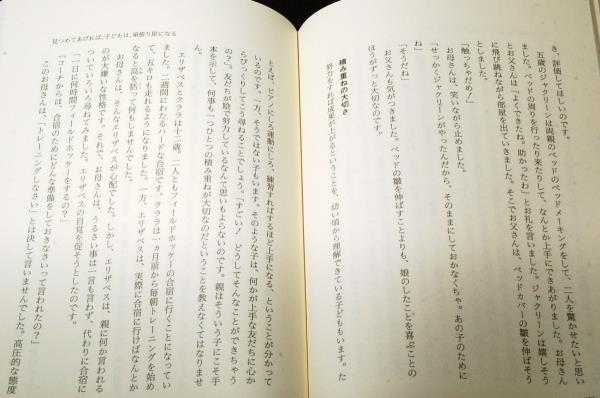 き、評価してほしいのです。
五歳のジャクリーンは両親のベッドのベッドメーキングをして、二人を驚かせたいと思い
ました。ベッドの周りを行ったり来たりして、なんとか上手にできあがりました。お母さん
とお父さんは「よくできたね。助かったわ」とお礼を言いました。ジャクリーンは嬉しそう
に飛び跳ねながら部屋を出ていきました。そこでお父さんは、ベッドカバーの皺を伸ばそう
としました。
「触っちゃだめ！」
お母さんは、笑いながら止めました。
「せっかくジャクリーンがやったんだから、そのままにしておかなくちゃ。あの子のために」
「そうだね」
お父さんも気がつきました。ベッドの皺を伸ばすことよりも、娘のしたことを喜ぶことの
ほうがずっと大切なのです。
積み重ねの大切さ
努力をすれば成果が上がるということを、幼い頃から理解できている子どももいます。た
見つめてあげれば、子どもは、頑張り屋になる
とえば、ピアノにしろ運動にしろ、練習すればするほど上手になる、ということが分かって
いるのです。一方、そうではない子もいます。そのような子は、何かが上手な友だちに心か
らびっくりしてこう尋ねることでしょう。「すごい！　どうしてそんなことができちゃう
の？」。友だちが陰で努力しているなんて思いもよらないのです。親はそういう子にこそ手
本を示して、何事も一つひとつの積み重ねが大切なのだということを教えなくてはなりませ
ん。
エリザベスとクララは十二歳。二人ともフィールドホッケーの合宿に行くことになってい
ました。二週間にわたるハードな合宿です。クララは一カ月前から毎朝トレーニングを始め
て、五キロも走れるようになりました。一方、エリザベスは、実際に合宿に行けばなんとか
なると高を括って何もしませんでした。
お母さんは、そんなエリザベスが心配でした。しかし、エリザベスは、親に何か言われる
のが大嫌いな性格です。それで、お母さんは、うるさい事は一言も言わず、代わりに合宿に
ついていろいろ尋ねてみました。エリザベスの自覚を促そうとしたのです。
「一日に何時間フィールドホッケーをするの？」
「コーチからは、合宿のためにどんな準備をしておきなさいって言われたの？」
このお母さんは、「トレーニングしなさい」とは決して言いませんでした。高圧的な態度